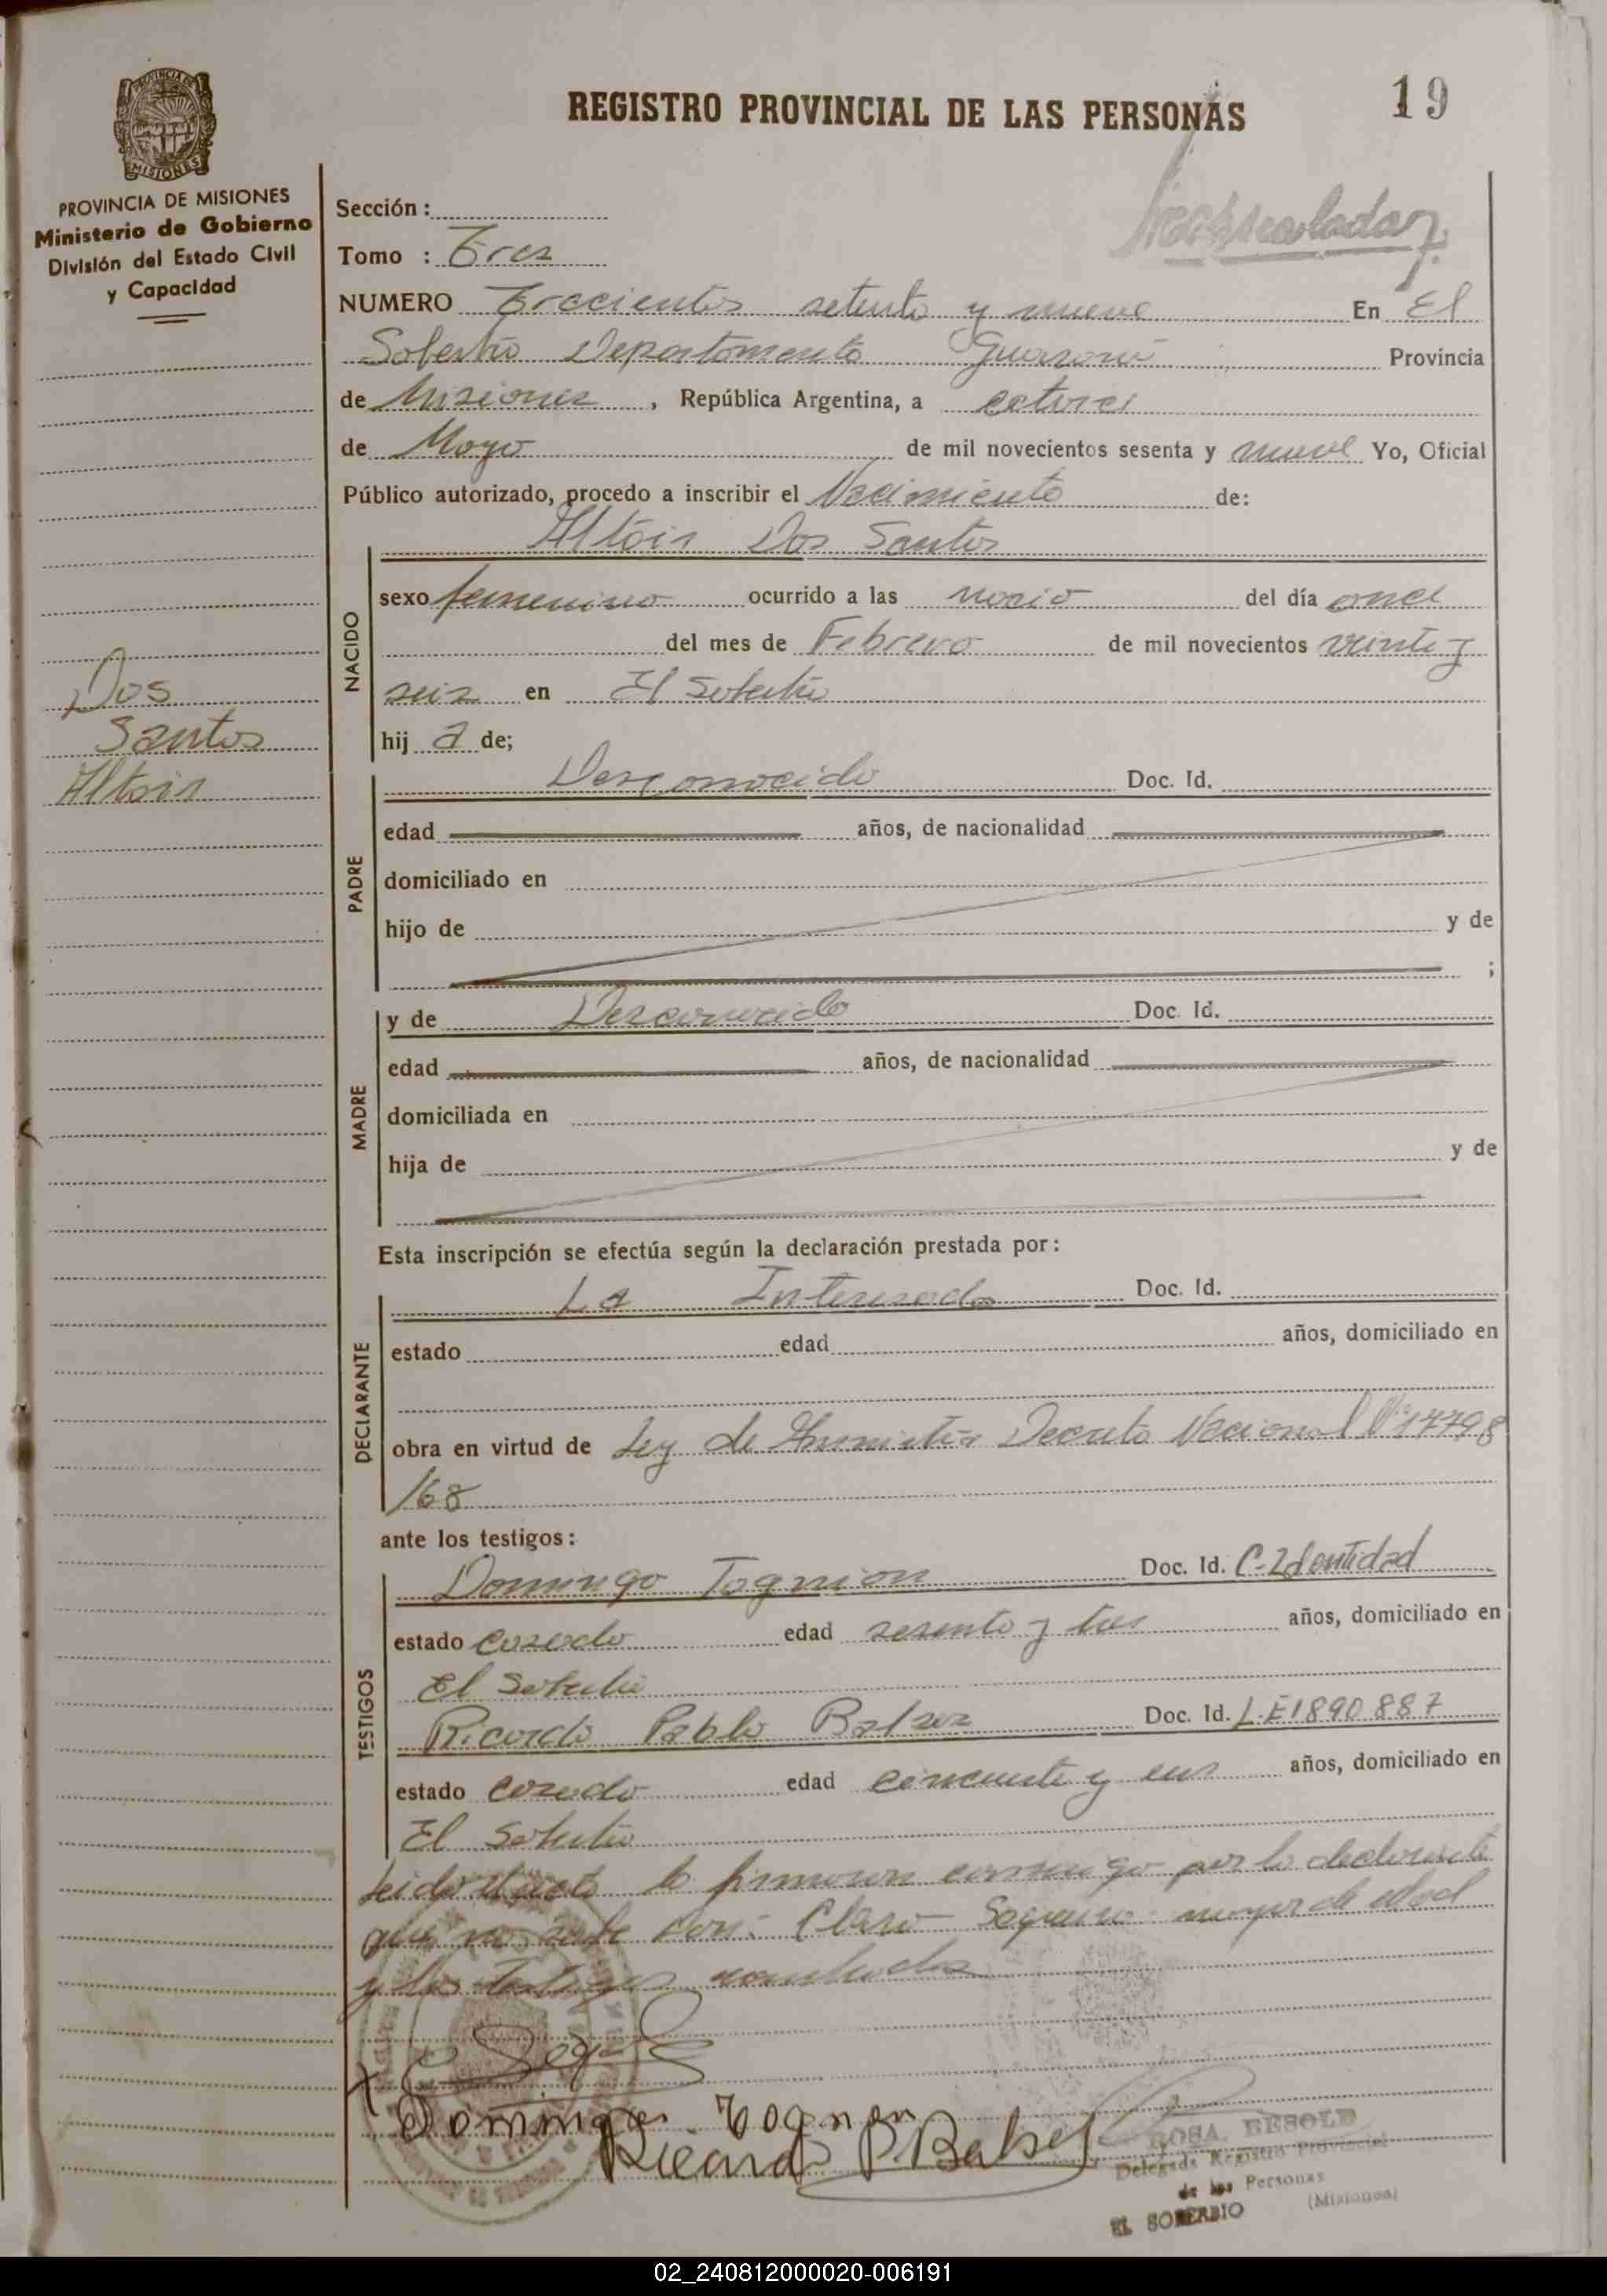 REGISTRO PROVINCIAL DE LAS PERSONAS
19
PROVINCIA DE MISIONES
MISIONES
PROVINCIA DE MISIONES
Ministerio de Gobierno
División del Estado Civil
y Capacidad
Sección :
Tomo : Tres
NUMERO Trecientos setenta y nueve En El
Soberbio Departamento Guaraní Provincia
de Misiones , República Argentina, a catorce
de Mayo de mil novecientos sesenta y nueve Yo, Oficial
Público autorizado, procedo a inscribir el Nacimiento de:
Altóir Dos Santos
NACIDO
sexo femenino ocurrido a las del día once
del mes de Febrero de mil novecientos veinte y
seis en El Soberbio
hij a de;
Dos
Santos
Altoir
PADRE
Desconocido Doc. Id.
edad años, de nacionalidad
domiciliado en
hijo de y de
;
MADRE
y de Desconocido Doc. Id.
edad años, de nacionalidad
domiciliada en
hija de y de
Esta inscripción se efectúa según la declaración prestada por:
DECLARANTE
La Interesada Doc. Id.
estado edad años, domiciliado en
obra en virtud de Ley de Amnistía Decreto Nacional Nº 17798
/68
ante los testigos:
TESTIGOS
Domingo Tognion Doc. Id. C-Identidad
estado casado edad sesenta y tres años, domiciliado en
El Soberbio
Ricardo Pablo Balzer Doc. Id. L.E 1890 887
estado casado edad cincuenta y uno años, domiciliado en
El Soberbio
Leida el acta la firmaron conmigo por la declarante
que no sabe Claro Sequeira mayor de edad
y los testigos nombrados
Domingo Tognon
Ricardo P Balzer
ROSA BESOLD
Delegada Registro Provincial
de las Personas
EL SOBERBIO (Misiones)
02_240812000020-006191